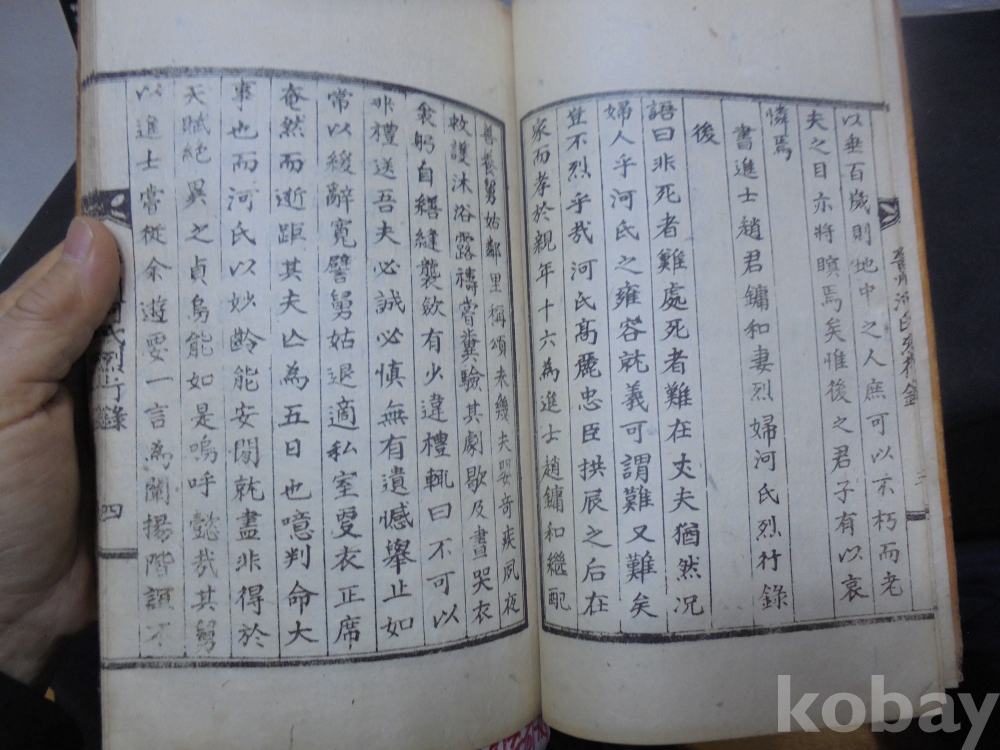 晋州河氏烈行錄
三
以垂百歲則地中之人庶可以不朽而老
夫之目亦將瞑焉矣惟後之君子有以哀
憐焉
書進士趙君鏞和妻烈婦河氏烈行錄
後
語曰非死者難處死者難在丈夫猶然況
婦人乎河氏之雍容就義可謂難又難矣
豈不烈乎哉河氏高麗忠臣拱辰之后在
家而孝於親年十六為進士趙鏞和繼配
善養舅姑鄰里稱頌未幾夫嬰奇疾夙夜
救護沐浴露禱嘗糞驗其劇歇及晝哭衣
衾躬自縉縫襲斂有少違禮輒曰不可以
非禮送吾夫必誠必慎無有遺憾舉止如
常以緩辭寬譬舅姑退適私室更衣正席
奄然而逝距其夫亾為五日也噫判命大
事也而河氏以妙齡能安閒就盡非得於
天賦絕異之貞烏能如是嗚呼懿哉其舅
以進士嘗從余遊要一言為闡揚階誼不
河氏烈行錄
四
kobay